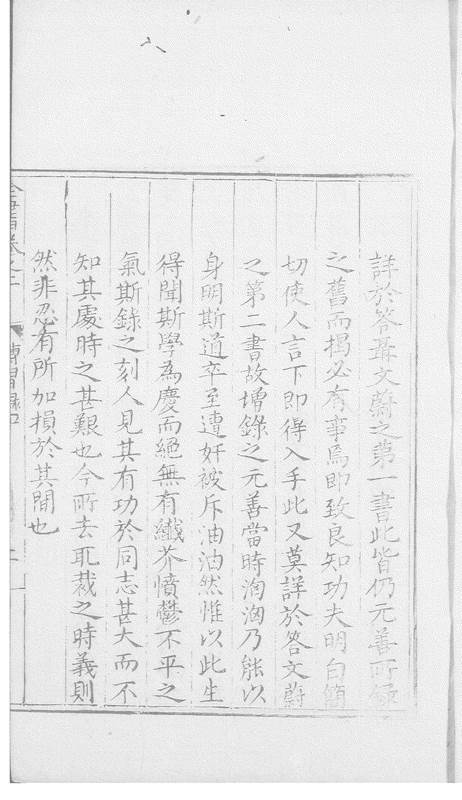 詳於答聶文蔚之第一書此皆仍元善所錄
之舊而揭必有事焉即致良知功夫明白簡
切使人言下即得入手此又莫詳於答文蔚
之第二書故增錄之元善當時洶洶乃能以
身明斯道卒至遭奸被斥油油然惟以此生
得聞斯學為慶而絕無有纖芥憤鬱不平之
氣斯錄之刻人見其有功於同志甚大而不
知其處時之甚艱也今所去取裁之時義則
然非忍有所加損於其間也
全書卷之二 傳習錄中